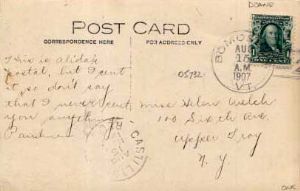 DOANE
POST CARD
CORRESPONDENCE HERE
FOR ADDRESS ONLY
BOMO
AUG
15
A.M.
1907
VT.
05732
This is a
postal, but I sent
it so don't say
that I never sent
you anything
Miss Helen Welch
100 Sixth Ave
Upper Troy
N.Y.
CASTLE